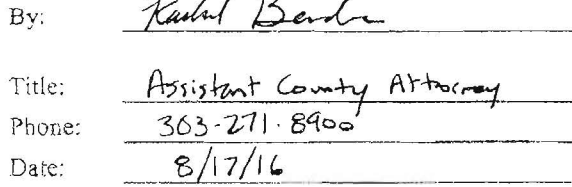 By:
Title: Assistant County Attorney
Phone: 303-271-8900
Date: 8/17/16